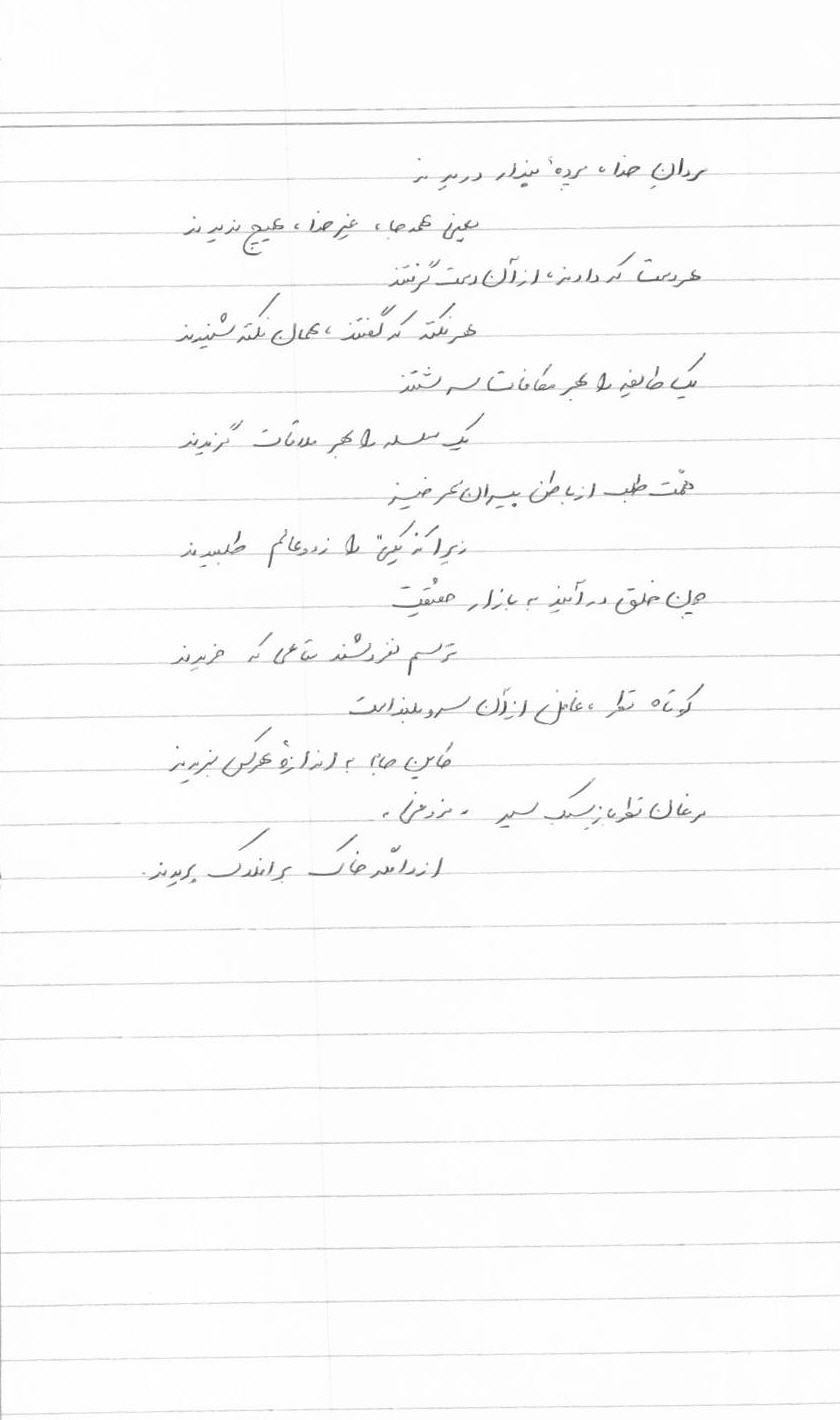 مردانِ خدا، پردهٔ پندار دریدند
یعنی همه‌جا، غیرِ خدا، هیچ ندیدند
هر دست که دادند، از آن دست گرفتند
هر نکته که گفتند، همان نکته شنیدند
یک طایفه را بهر مکافات سرشتند
یک سلسله را بهر ملاقات گزیدند
همّت طلب از باطن پیران سحرخیز
زیرا که یکی را ز دو عالم طلبیدند
چون خلق در آیند به بازار حقیقت
ترسم نفروشند متاعی که خریدند
کوتاه نظر، غافل از آن سرو بلند است
کاین جامه به اندازهٔ هرکس نبریدند
مرغان نظرباز سبک سیر، فروغی،
از دامگه خاک بر افلاک پریدند.